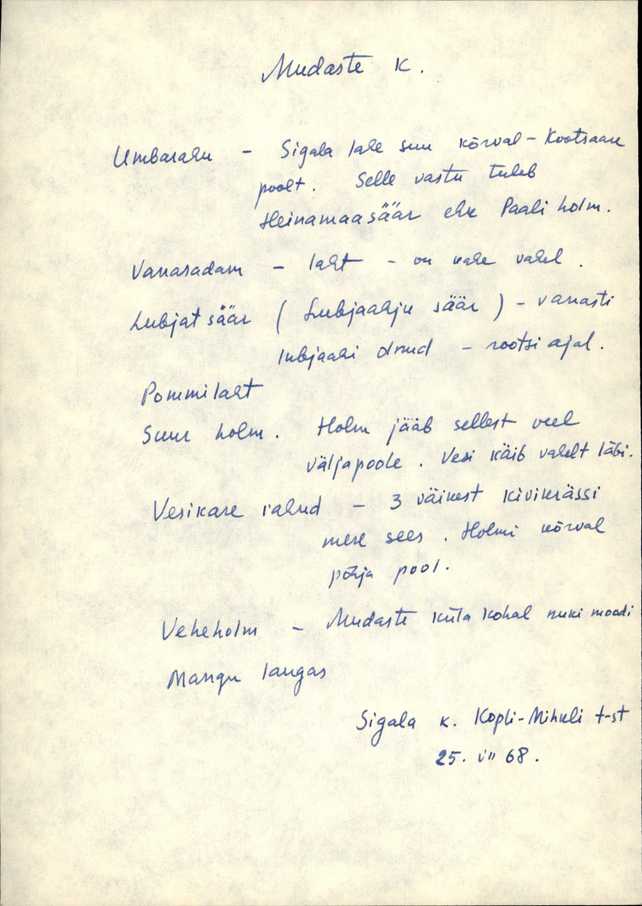 Mudaste k.
Umbarahu – Sigala lahe suu kõrval – Kootsaare
poolt. Selle vastu tuleb
Heinamaasäär ehk Paali holm.
Vanasadam – laht – on kahe vahel.
Lubjatsäär (Lubjaahju säär) – vanasti
lubjaahi olnud – rootsi ajal.
Pommilaht
Suur holm. Holm jääb sellest veel
väljapoole. Vesi käib vahelt läbi.
Vesikare rahud – 3 väikest kivikrässi
mere sees. Holmi kõrval
põhja pool.
Veheholm – Mudaste küla kohal nuki moodi
Mangu laugas
Sigala k. Kopli-Mihkli t-st
25. VII 68.